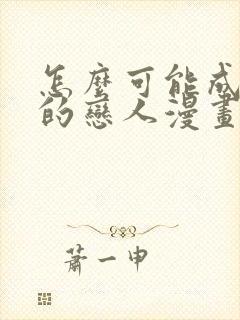 怎麼可能成
的戀人漫畫
蕭一申